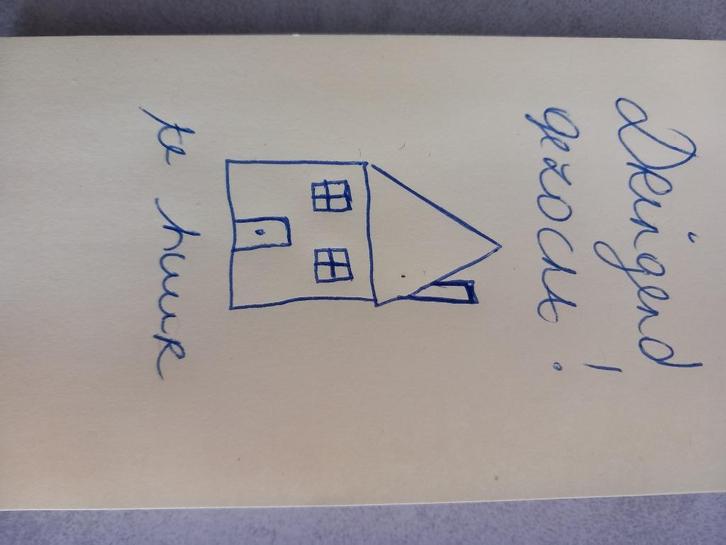 Dringend
gezocht!
te huur